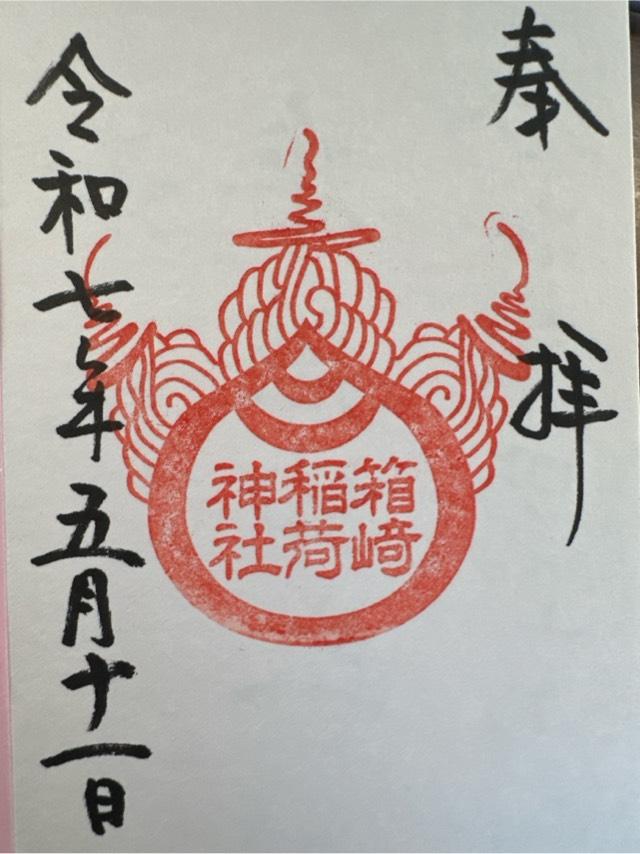 奉拝
箱崎
稲荷
神社
令和七年五月十一日